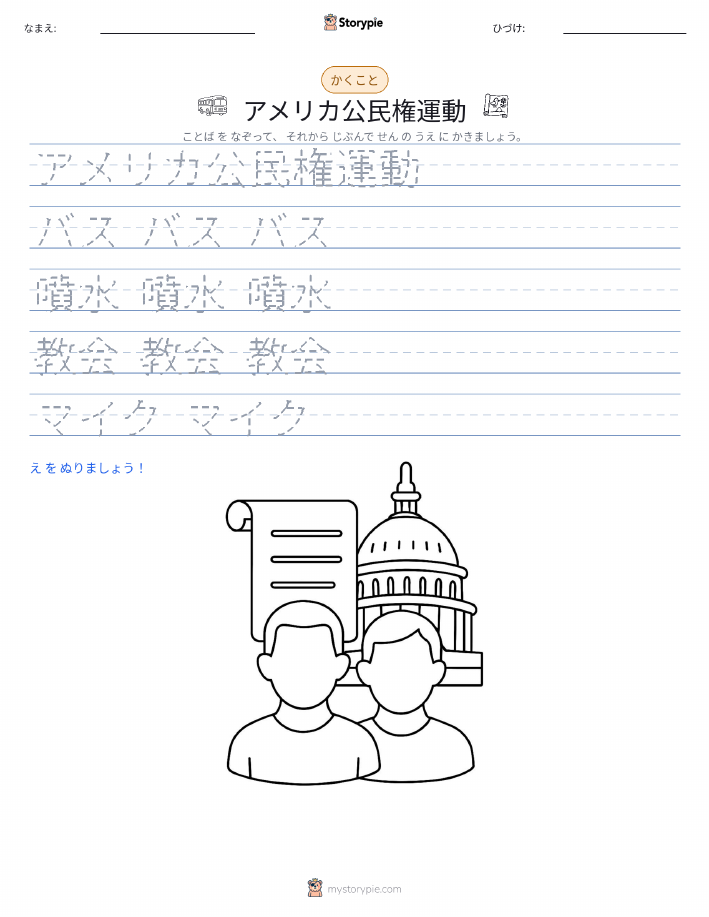 なまえ:
Storypie
ひづけ:
かくこと
アメリカ公民権運動
ことば を なぞって、 それから じぶんで せん の うえ に かきましょう。
アメリカ公民権運動
バス バス バス
噴水 噴水 噴水
教会 教会 教会
マイク マイク
え を ぬりましょう！
mystorypie.com